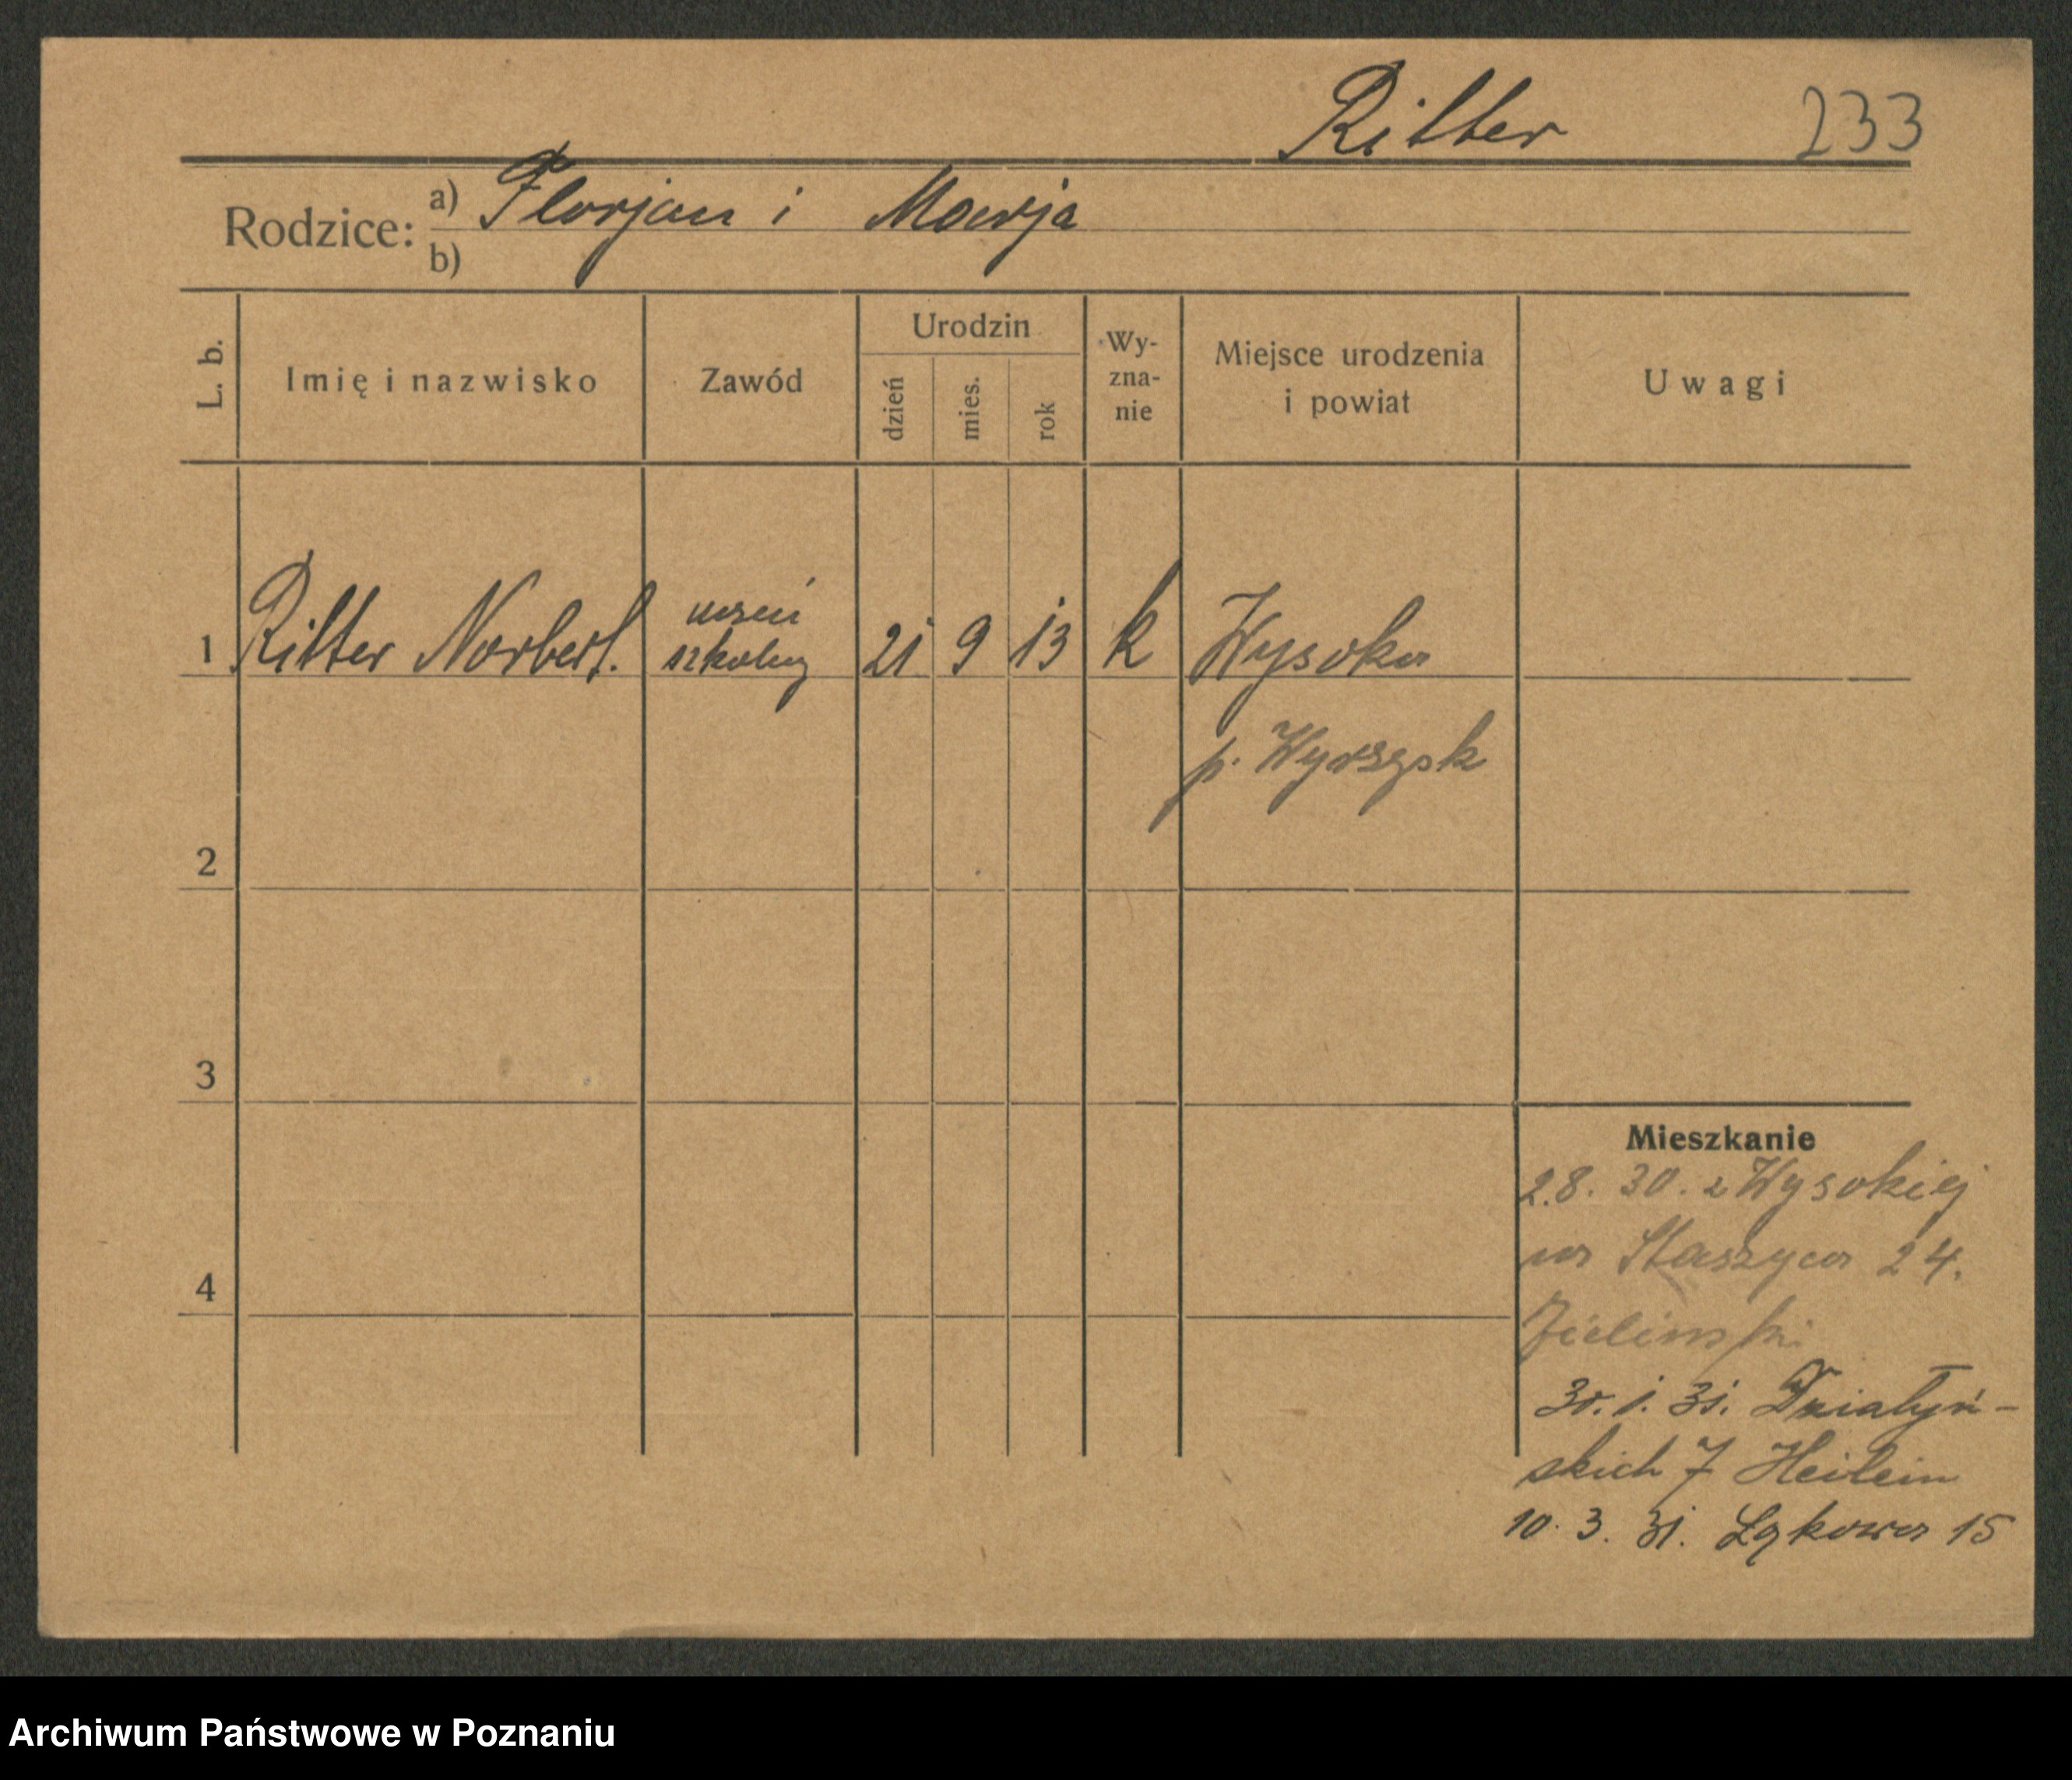 Ritter 233
Rodzice: a) Florjan i Marja
b)
L. b. Imię i nazwisko Zawód Urodzin dzień mies. rok Wy-zna-nie Miejsce urodzenia i powiat Uwagi
1 Ritter Norbert. uczeń szkolny 21 9 13 k Wysoka
p. Wyrzysk
2
3
4
Mieszkanie
2.8. 30. z Wysokiej
na Staszyca 24.
Zieliński
30. 1. 31. Działyń-
skich 7 Heilein
10. 3. 31. Łąkowa 15
Archiwum Państwowe w Poznaniu